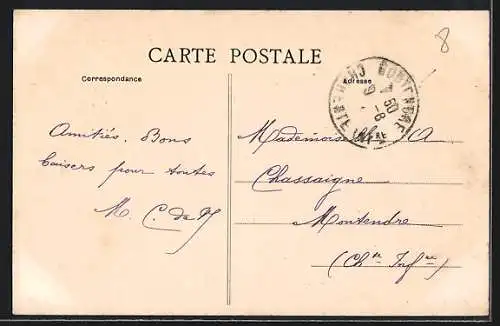 8
CARTE POSTALE
Correspondance
Adresse
Amitiés. Bons
baisers pour toutes
M. C. de
Mademoiselle A
Chassaigne
Montendre
(Chte Infre)